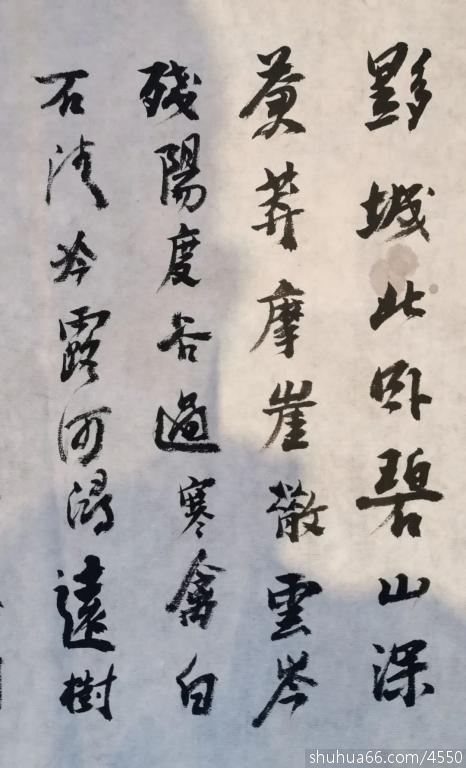 黟城北卧碧山深
莽摩崖散雲岑
殘陽度谷過寒禽白
石清泠露河潯遠樹
shuhua66.com/4550